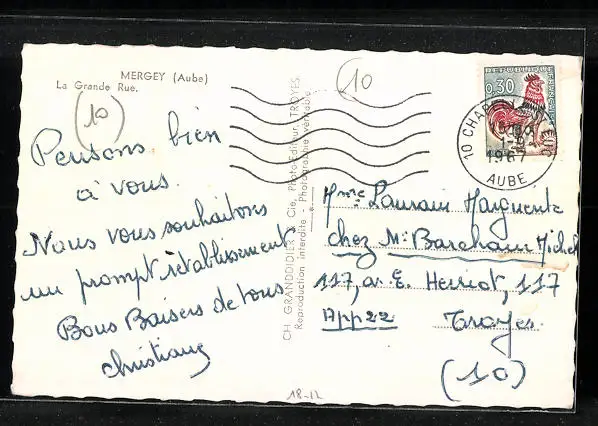 MERGEY (Aube)
La Grande Rue.
(10)
(10)
Pensons bien
à vous.
Nous vous souhaitons
un prompt rétablissement
Bons Baisers de tous
Christiane
CH. GRANDDIDIER & Cie, Photo-Editeur, TROYES.
Reproduction interdite - Photographie véritable
REPUBLIQUE
0,30
10
1967
AUBE
Mme Laurain Marguerite
chez Mr Barcham Michel
117, av. E. Herriot, 117
App 22 Troyes.
(10)
18-12